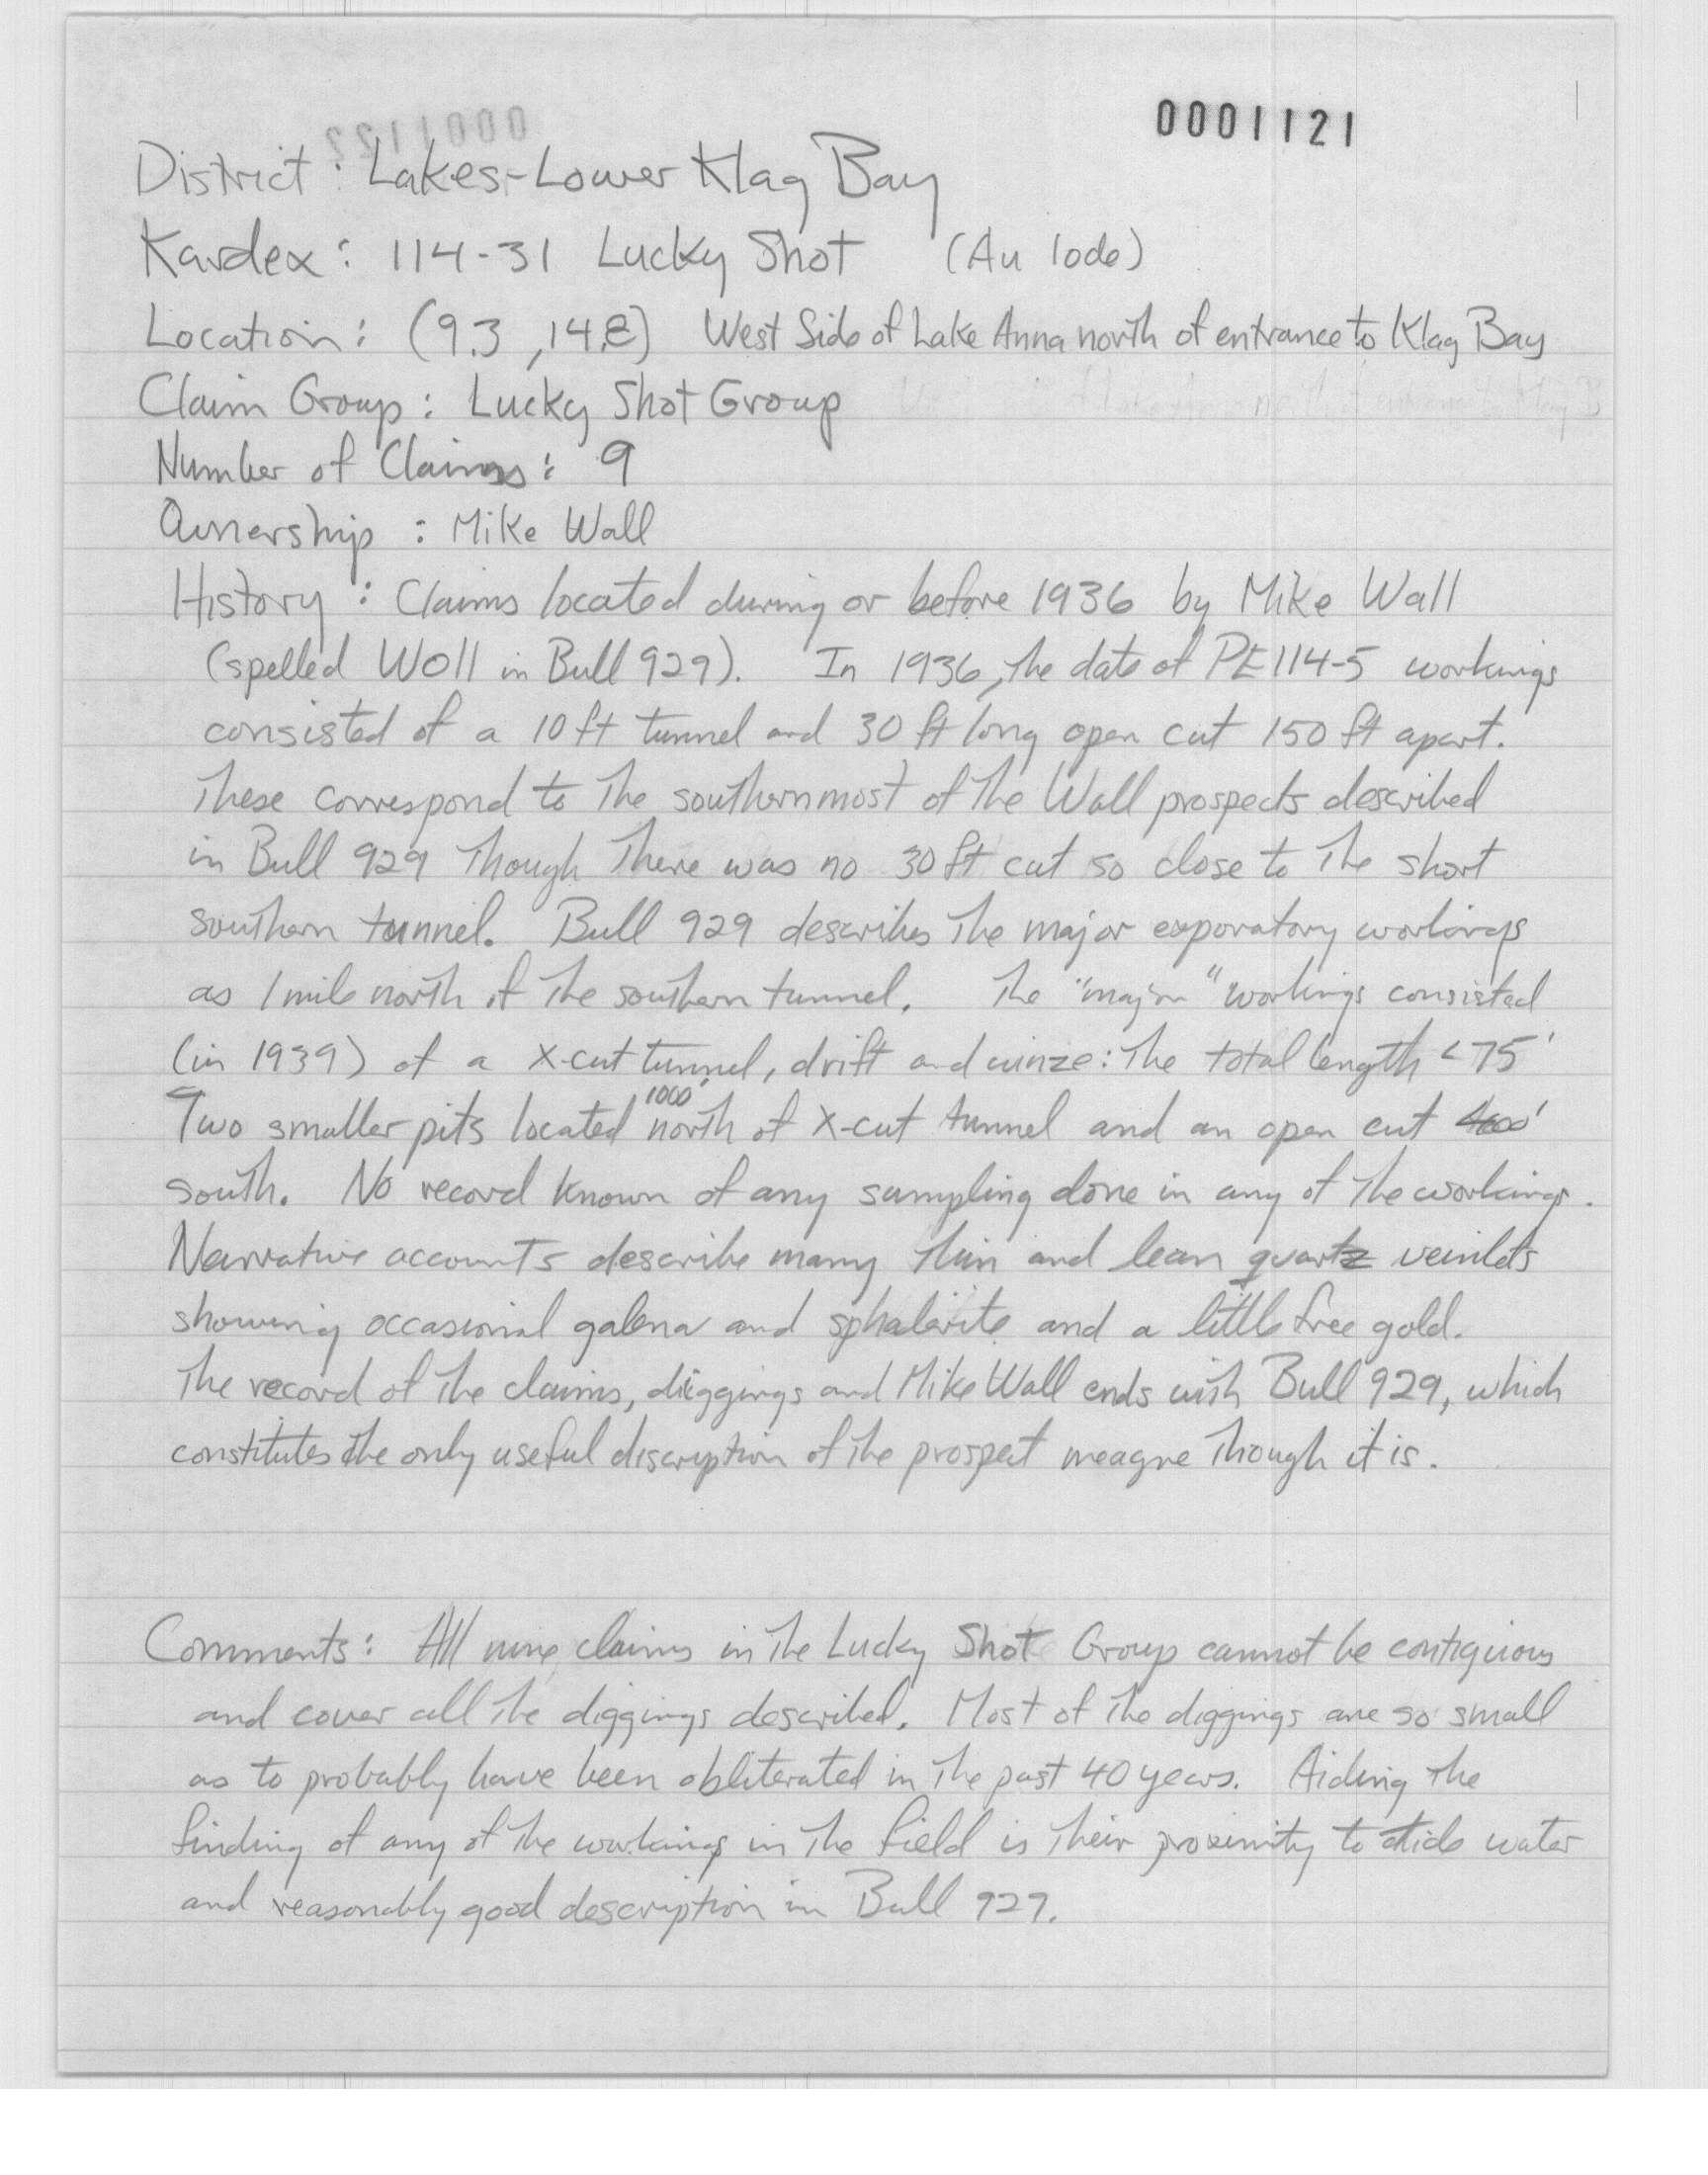 0001121
District: Lakes-Lower Klag Bay
Kardex: 114-31 Lucky Shot (Au lode)
Location: (9.3, 14.8) West Side of Lake Anna north of entrance to Klag Bay
Claim Group: Lucky Shot Group
Number of Claims: 9
Ownership: Mike Wall
History: Claims located during or before 1936 by Mike Wall
(spelled Woll in Bull 929). In 1936, the date of PE114-5 workings
consisted of a 10 ft tunnel and 30 ft long open cut 150 ft apart.
These correspond to the southernmost of the Wall prospects described
in Bull 929 though there was no 30 ft cut so close to the short
southern tunnel. Bull 929 describes the major exporatory workings
as 1 mile north of the southern tunnel. The "major" workings consisted
(in 1939) of a X-cut tunnel, drift and winze: the total length < 75'
Two smaller pits located 1000' north of X-cut tunnel and an open cut 400'
south. No record known of any sampling done in any of the workings.
Narrative accounts describe many thin and lean quartz veinlets
showing occasional galena and sphalerite and a little free gold.
The record of the claims, diggings and Mike Wall ends with Bull 929, which
constitutes the only useful discription of the prospect meagre though it is.
Comments: All nine claims in the Lucky Shot Group cannot be contiguous
and cover all the diggings described. Most of the diggings are so small
as to probably have been obliterated in the past 40 years. Aiding the
finding of any of the workings in the field is their proximity to tide water
and reasonably good description in Bull 929.